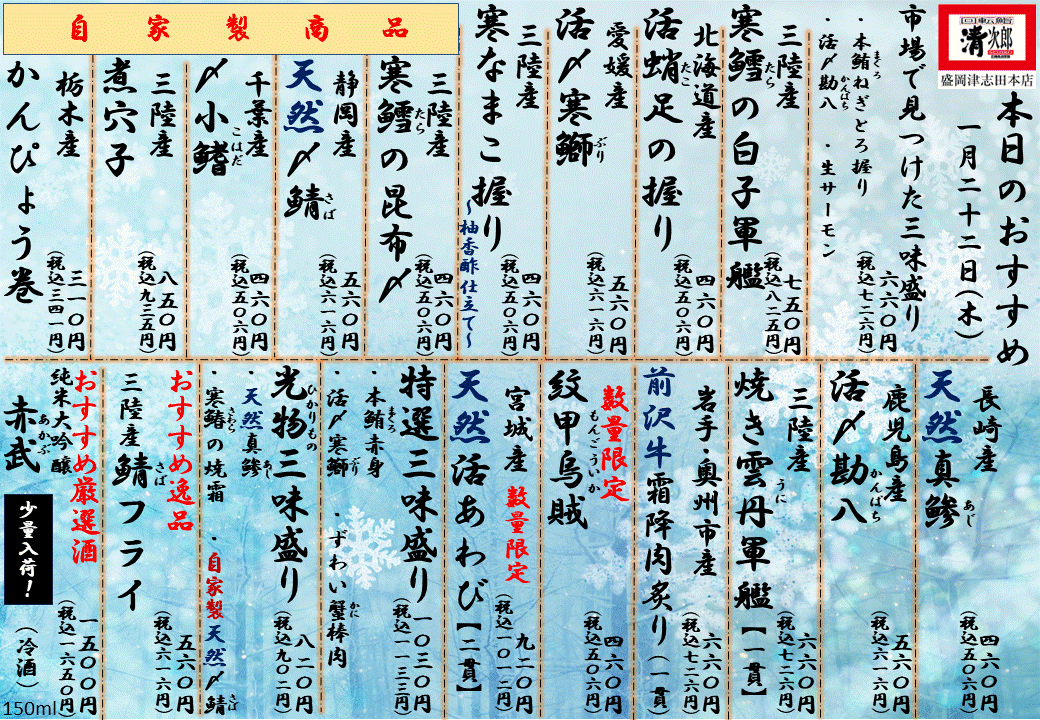 回転鮨
清次郎
盛岡津志田本店
本日のおすすめ
一月二十二日(木)
市場で見つけた三味盛り
・本鮪ねぎとろ握り
まぐろ
・活〆勘八 ・生サーモン
かんぱち
六六〇円
(税込七二六円)
三陸産
寒鱈の白子軍艦
たら
七五〇円
(税込八二五円)
北海道産
活蛸足の握り
たこ
四六〇円
(税込五〇六円)
愛媛産
活〆寒鰤
ぶり
五六〇円
(税込六一六円)
三陸産
寒なまこ握り
~柚香酢仕立て~
四六〇円
(税込五〇六円)
自家製商品
三陸産
寒鱈の昆布〆
たら
四六〇円
(税込五〇六円)
静岡産
天然〆鯖
さば
五六〇円
(税込六一六円)
千葉産
〆小鰭
こはだ
四六〇円
(税込五〇六円)
三陸産
煮穴子
八五〇円
(税込九三五円)
栃木産
かんぴょう巻
三一〇円
(税込三四一円)
長崎産
天然真鯵
あじ
四六〇円
(税込五〇六円)
鹿児島産
活〆勘八
かんぱち
五六〇円
(税込六一六円)
三陸産
焼き雲丹軍艦【一貫】
うに
六六〇円
(税込七二六円)
岩手・奥州市産
前沢牛霜降肉炙り(一貫)
六六〇円
(税込七二六円)
数量限定
紋甲烏賊
もんごういか
四六〇円
(税込五〇六円)
宮城産 数量限定
天然活あわび【二貫】
九二〇円
(税込一〇一二円)
特選三味盛り
・本鮪赤身
まぐろ
・活〆寒鰤 ・ずわい蟹棒肉
ぶり
かに
一〇三〇円
(税込一一三三円)
光物三味盛り
ひかりもの
・天然真鯵
あじ
・寒鰆の焼霜
さわら
・自家製天然〆鯖
さば
八二〇円
(税込九〇二円)
おすすめ逸品
三陸産鯖フライ
さば
五六〇円
(税込六一六円)
おすすめ厳選酒
純米大吟醸
赤武
あかぶ
少量入荷!
一五〇〇円
(税込一六五〇円)
(冷酒)
150ml